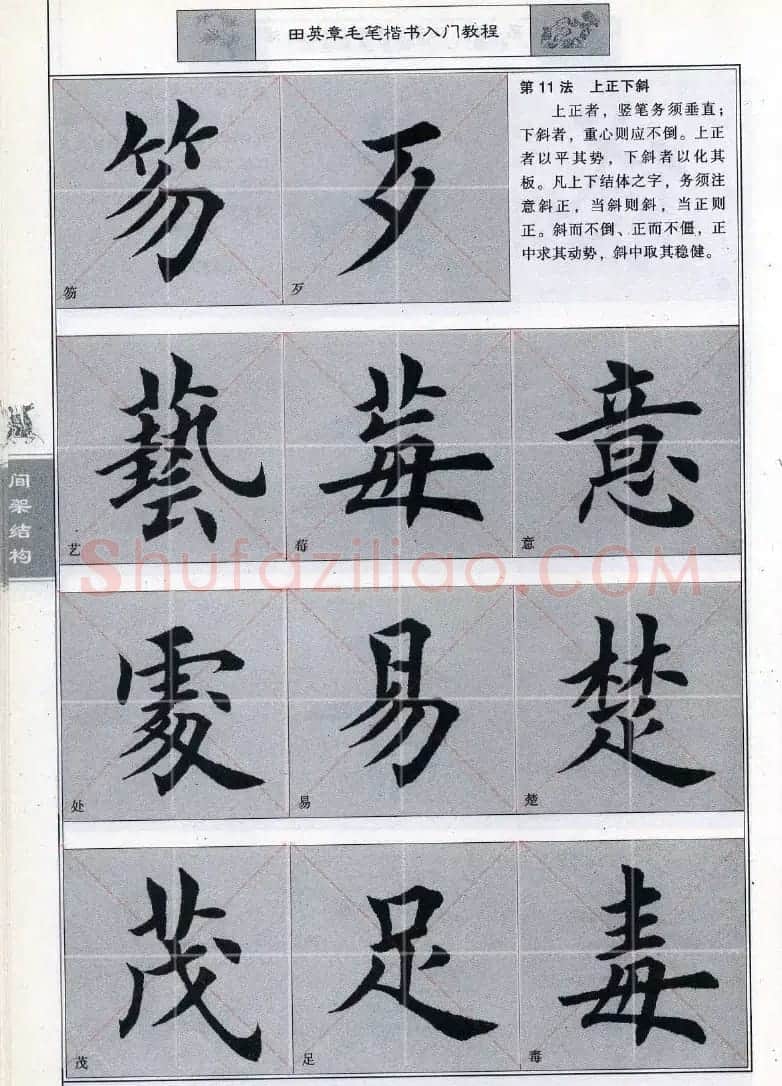 田英章毛笔楷书入门教程
第11法 上正下斜
上正者，竖笔务须垂直；
下斜者，重心则应不倒。上正
者以平其势，下斜者以化其
板。凡上下结体之字，务须注
意斜正，当斜则斜，当正则
正。斜而不倒、正而不僵，正
中求其动势，斜中取其稳健。
笏 歹
笏 歹
藝 莓 意
艺 莓 意
Shufaziliao.COM
處 易 楚
处 易 楚
茂 足 毒
茂 足 毒
间架结构